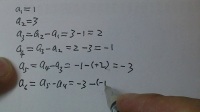 a₁=1
a₂=3
a₃=a₂-a₁=3-1=2
a₄=a₃-a₂=2-3=-1
a₅=a₄-a₃=-1-(+2)=-3
a₆=a₅-a₄=-3-(-1